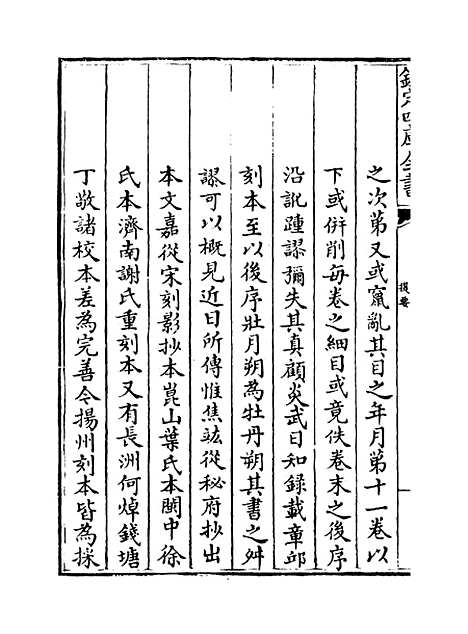 欽定四庫全書
提要
之次第又或竄亂其目之年月第十一卷以
下或併削每卷之細目或竟佚卷末之後序
沿訛踵謬彌失其真顧炎武日知錄載章邱
刻本至以後序壯月朔為牡丹朔其書之舛
謬可以概見近日所傳惟焦竑從秘府抄出
本文嘉從宋刻影抄本崑山葉氏本閩中徐
氏本濟南謝氏重刻本又有長洲何焯錢塘
丁敬諸校本差為完善今揚州刻本皆為採